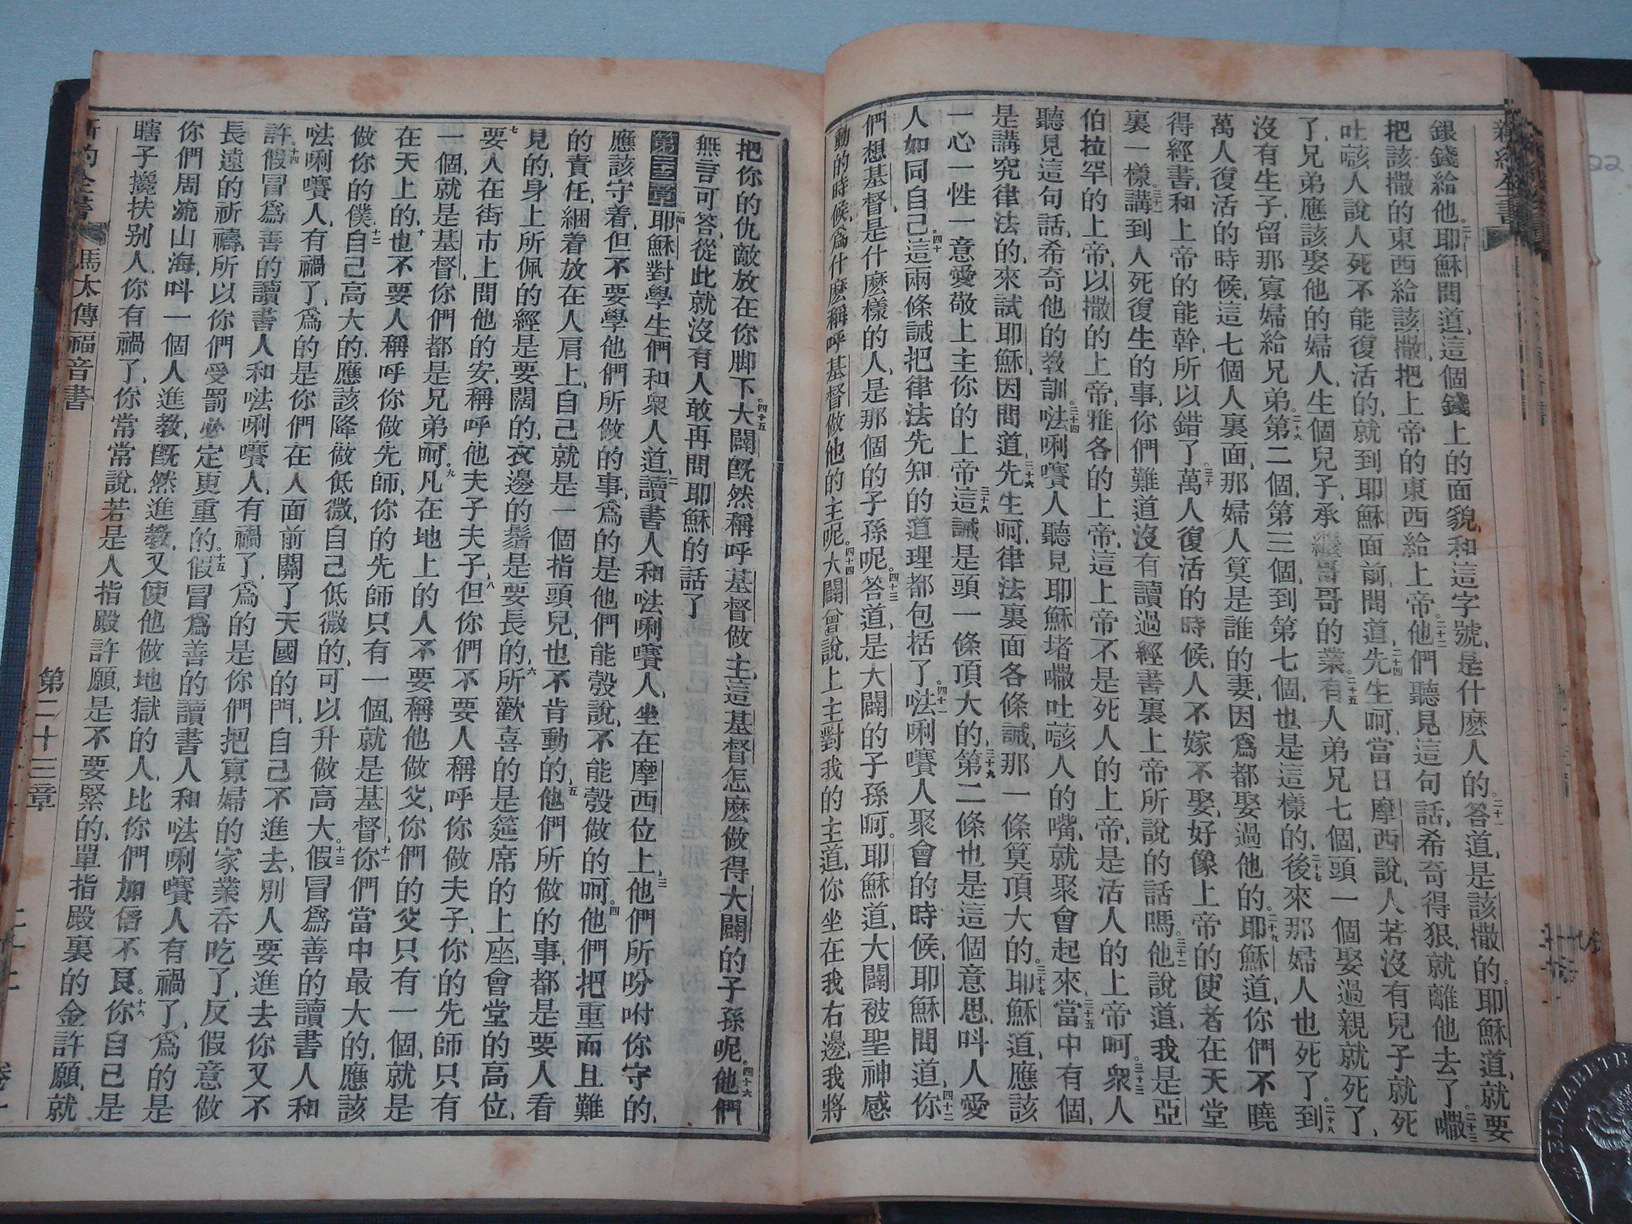 新約全書
銀錢給他耶穌問道這個錢上的面貌和這字號是什麽人的二十一答道是該撒的耶穌道就要
把該撒的東西給該撒把上帝的東西給上帝二十二他們聽見這句話希奇得狠就離他去了二十三𠾴
吐㗒人說人死不能復活的就到耶穌面前問道二十四先生呵當日摩西說人若沒有兒子就死
了兄弟應該娶他的婦人生個兒子承繼哥哥的業二十五有人弟兄七個頭一個娶過親就死了
沒有生子留那寡婦給兄弟二十六第二個第三個到第七個也是這樣的二十七後來那婦人也死了二十八到
萬人復活的時候這七個人裏面那婦人算是誰的妻因爲都娶過他的二十九耶穌道你們不曉
得經書和上帝的能幹所以錯了三十萬人復活的時候人不嫁不娶好像上帝的使者在天堂
裏一樣三十一講到人死復生的事你們難道沒有讀過經書裏上帝所說的話嗎三十二他說道我是亞
伯拉罕的上帝以撒的上帝雅各的上帝這上帝不是死人的上帝是活人的上帝呵三十三衆人
聽見這句話希奇他的教訓三十四㳒唎㘔人聽見耶穌堵𠾴吐㗒人的嘴就聚會起來三十五當中有個
是講究律法的來試耶穌因問道三十六先生呵律法裏面各條誡那一條算頂大的三十七耶穌道應該
一心一性一意愛敬上主你的上帝三十八這誡是頭一條頂大的三十九第二條也是這個意思呌人愛
人如同自己四十這兩條誡把律法先知的道理都包括了四十一㳒唎㘔人聚會的時候耶穌問道四十二你
們想基督是什麽樣的人是那個的子孫呢答道是大闢的子孫呵四十三耶穌道大闢被聖神感
動的時候爲什麽稱呼基督做他的主呢四十四大闢曾說上主對我的主道你坐在我右邊我將
把你的仇敵放在你脚下四十五大闢旣然稱呼基督做主這基督怎麽做得大闢的子孫呢四十六他們
無言可答從此就沒有人敢再問耶穌的話了
第二十三章一耶穌對學生們和衆人道二讀書人和㳒唎㘔人坐在摩西位上三他們所吩咐你守的
應該守着但不要學他們所做的事爲的是他們能彀說不能彀做的呵四他們把重而且難
的責任綑着放在人肩上自己就是一個指頭兒也不肯動的五他們所做的事都是要人看
見的身上所佩的經是要闊的衣邊的鬚是要長的六所歡喜的是筵席的上座會堂的高位
七要人在街市上問他的安稱呼他夫子夫子八但你們不要人稱呼你做夫子你的先師只有
一個就是基督你們都是兄弟呵九凡在地上的人不要稱他做父你們的父只有一個就是
在天上的十也不要人稱呼你做先師你的先師只有一個就是基督十一你們當中最大的應該
做你的僕十二自己高大的應該降做低微自己低微的可以升做高大十三假冒爲善的讀書人和
㳒唎㘔人有禍了爲的是你們在人面前關了天國的門自己不進去別人要進去你又不
許十四假冒爲善的讀書人和㳒唎㘔人有禍了爲的是你們把寡婦的家業吞吃了反假意做
長遠的祈禱所以你們受罰必定更重的十五假冒爲善的讀書人和㳒唎㘔人有禍了爲的是
你們周流山海呌一個人進教旣然進教又使他做地獄的人比你們加倍不良十六你自己是
瞎子攙扶別人你有禍了你常常說若是人指殿許願是不要緊的單指殿裏的金許願就
新約全書
馬太傳福音書
第二十三章
二十二
卷一